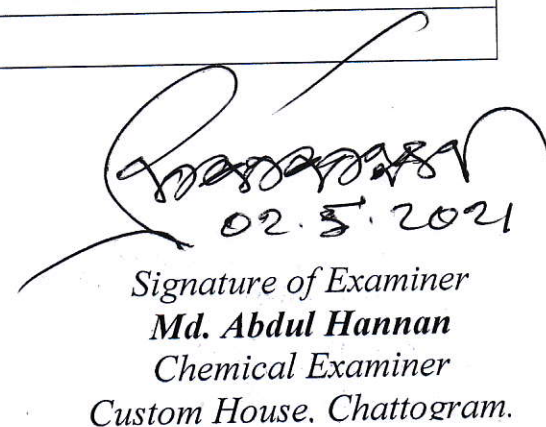 02.5.2021
Signature of Examiner
Md. Abdul Hannan
Chemical Examiner
Custom House, Chattogram.